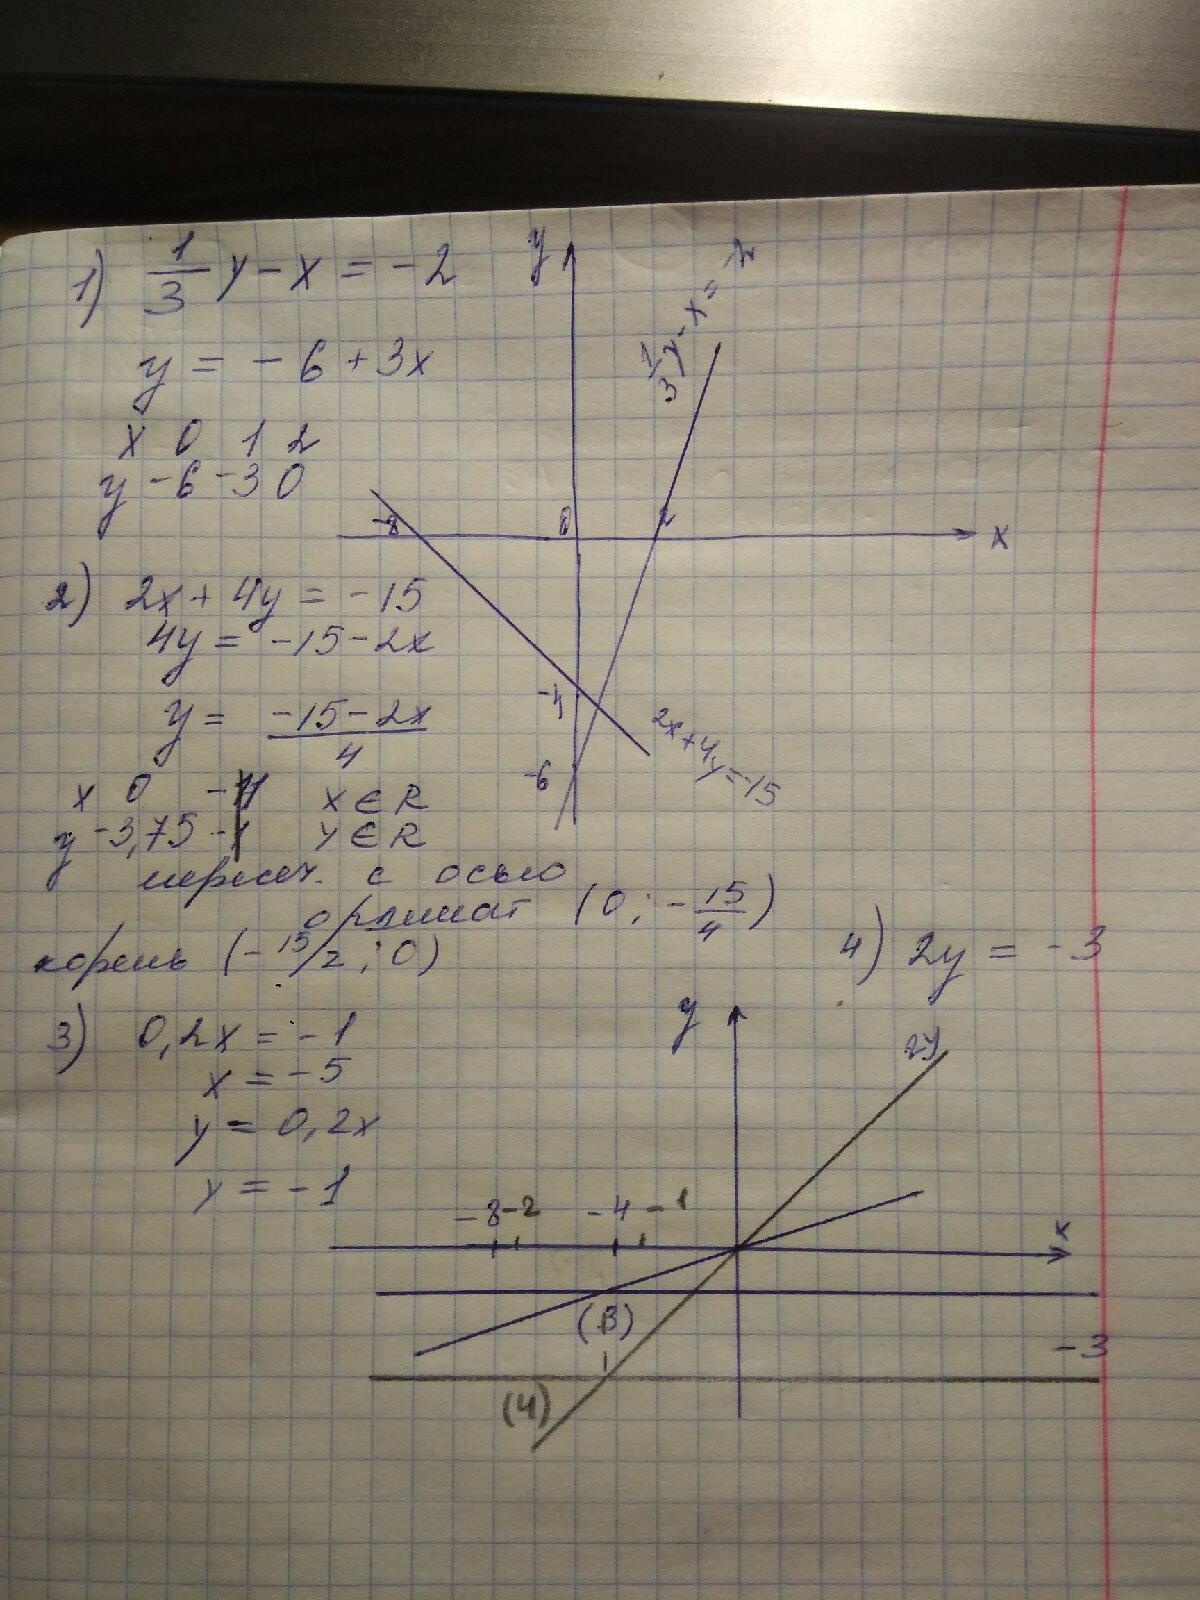 1) 1/3 y - x = -2
y = -6 + 3x
x 0 1 2
y -6 -3 0
y
1/3 y - x = -2
-8
0
2
x
-4
-6
2x+4y=-15
2) 2x + 4y = -15
4y = -15 - 2x
y = (-15 - 2x)/4
x 0 x ∈ R
y -3,75 y ∈ R
перес. с осью
ординат (0; -15/4)
корень (-15/2; 0)
3) 0,2x = -1
x = -5
y = 0,2x
y = -1
4) 2y = -3
y
2y
-8 -2 -4 -1
x
(3)
-3
(4)